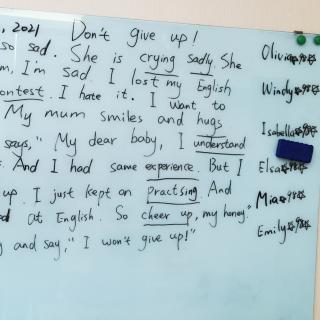 , 2021 Don't give up!
so sad. She is crying sadly. She
m, I'm sad. I lost my English
contest. I hate it. I want to
My mum smiles and hugs
says, "My dear baby, I understand
. And I had same experience. But I
up. I just kept on practsing. And
at English. So cheer up, my honey."
and say, "I won't give up!"
Olivia
Windy
Isabella
Elsa
Mia
Emily